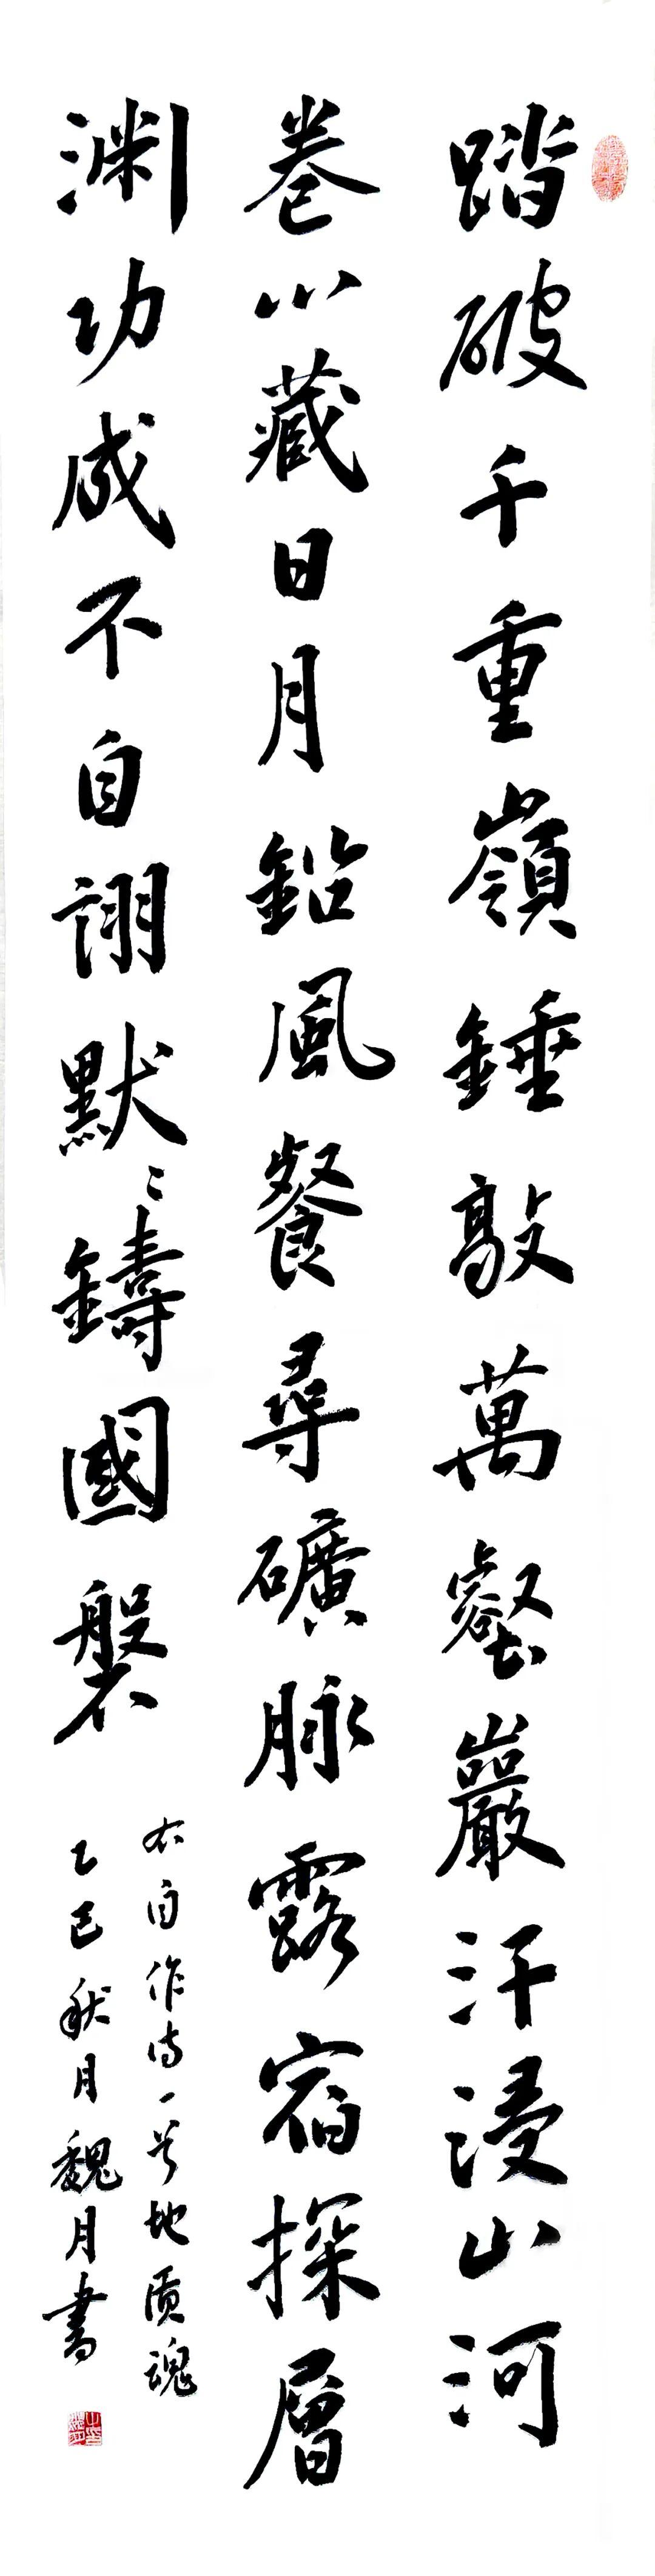 踏破千重嶺錘敲萬壑巖汗浸山河
卷心藏日月鉛風餐尋礦脉露宿探層
淵功成不自詡默〻鑄國磐
右自作诗一首地质魂
乙巳秋月魏月書